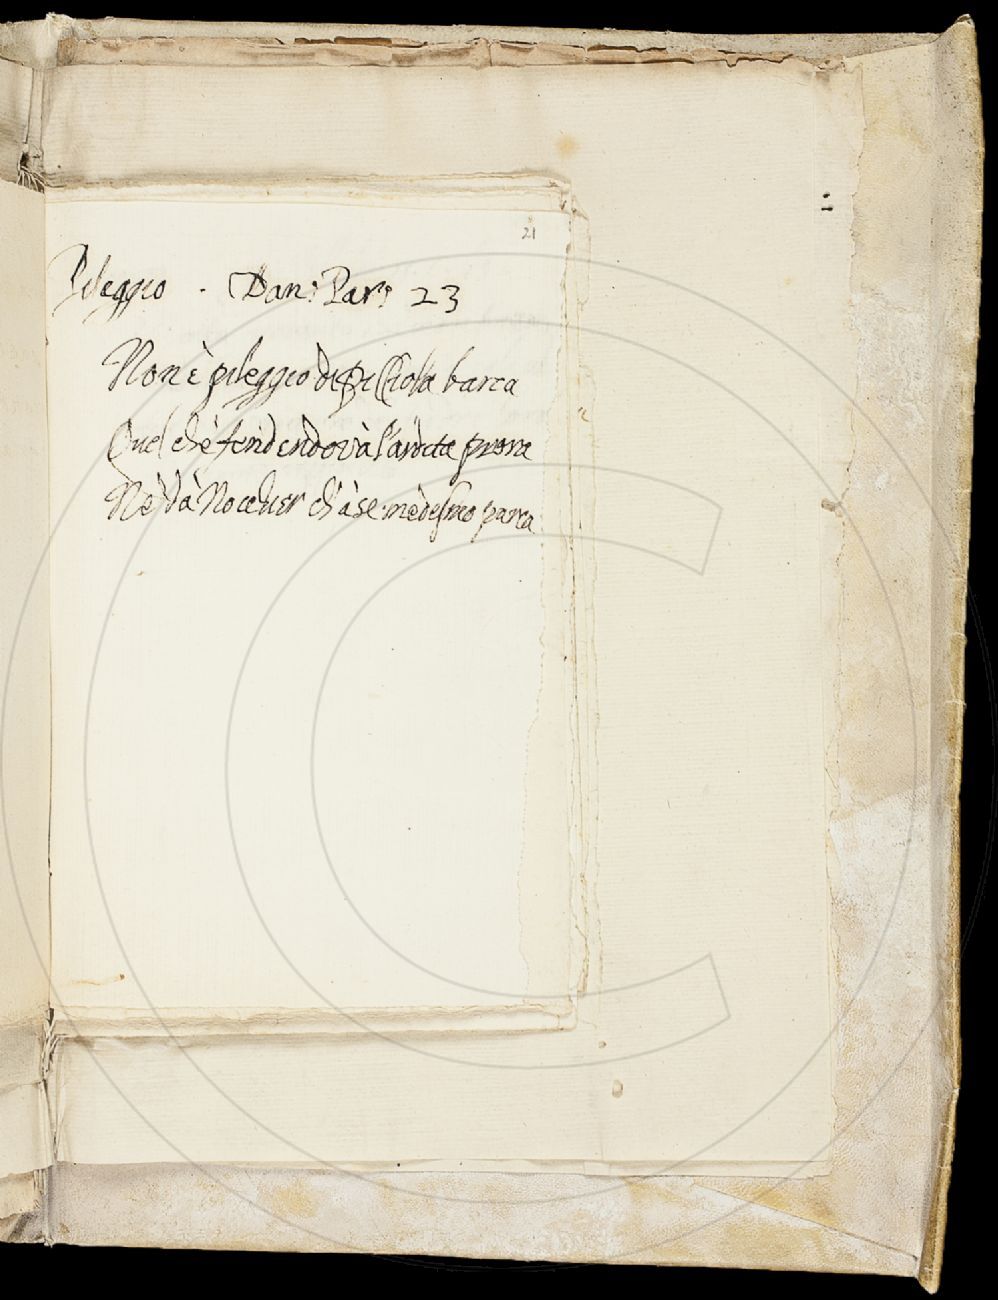 21
Pileggio . Dan: Par: 23
Non è pileggio di picciola barca
Quel chè fendendo và l'ardita prora
Nè dà Nochier ch'à se medesmo parca